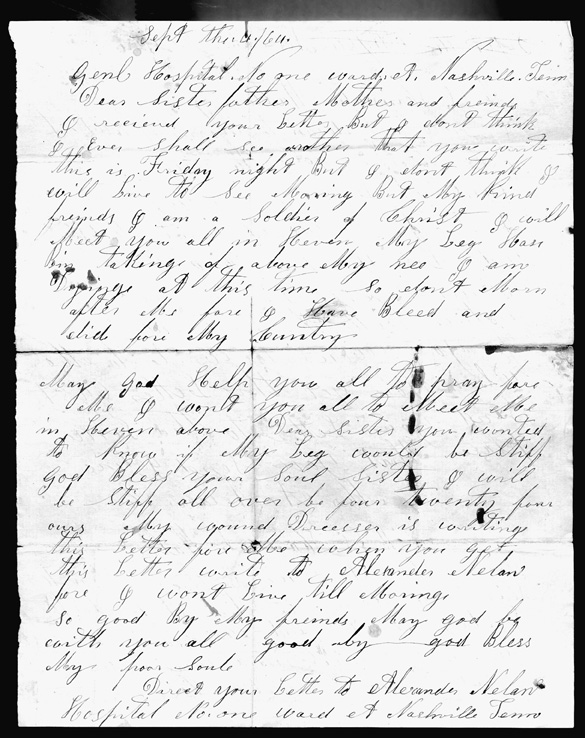 Sept the 4/64.
Genl Hospital. No one ward. A. Nashville. Tenn
Dear Sister father Mother and freinds
I reciend your Letter But I dont think
I Ever shall see another that you write
this is Friday night But I dont think I
will Live to See Morning But My Kind
freinds I am a Soldier of Christ I will
Meet you all in Heven My Leg Has
bin takings of above My nee I am
Dyinge at this time so dont Morn
after Me fore I Have Bleed and
died fore My Country
May God Help you all to pray fore
Me I wont you all to Meet Me
in Heven above Dear Sister you wonted
to Know if My Leg would be Stiff
God Bless your Soul Sister I will
be Stiff all over be four twenty four
ours My wound Drecesser is writing
this Letter fore Me when you get
this Letter write to Alexander Nelan
fore I wont Live till Morninge
so good By My freinds May god be
with you all good by god Bless
My poor Soule
Direct your Letter to Alexander Nelan
Hospital No. one ward A Nashville Tenn